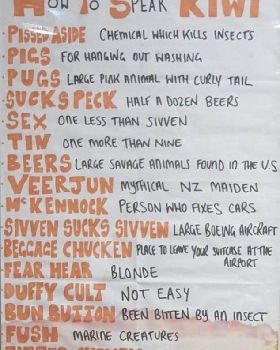 HOW TO SPEAK KIWI
PISSED ASIDE CHEMICAL WHICH KILLS INSECTS
PIGS FOR HANGING OUT WASHING
PUGS LARGE PINK ANIMAL WITH CURLY TAIL
SUCKS PECK HALF A DOZEN BEERS
SEX ONE LESS THAN SIVVEN
TIN ONE MORE THAN NINE
BEERS LARGE SAVAGE ANIMALS FOUND IN THE U.S
VEERJUN MYTHICAL NZ MAIDEN
McKENNOCK PERSON WHO FIXES CARS
SIVVEN SUCKS SIVVEN LARGE BOEING AIRCRAFT
BEGGAGE CHUCKEN PLACE TO LEAVE YOUR SUITCASE AT THE
AIRPORT
FEAR HEAR BLONDE
DUFFY CULT NOT EASY
BUN BUTTON BEEN BITTEN BY AN INSECT
FUSH MARINE CREATURES